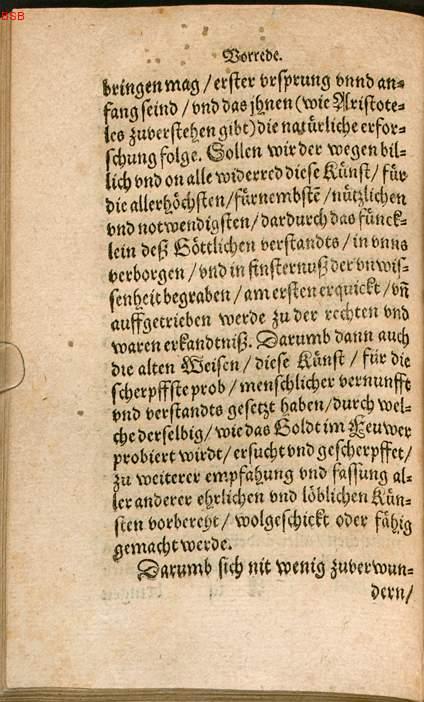 BSB
Vorrede.
bringen mag / erster vrsprung vnnd an-
fang seind / vnd das jhnen (wie Aristote-
les zuverstehen gibt) die natürliche erfor-
schung folge. Sollen wir der wegen bil-
lich vnd on alle widerred diese Künst / für
die allerhöchsten / fürnembstē / nützlichen
vnd notwendigsten / dardurch das fünck-
lein deß Göttlichen verstandts / in vnns
verborgen / vnd in finsternuß der vnwis-
senheit begraben / am ersten erquickt / vñ
auffgetrieben werde zu der rechten vnd
waren erkandtniß. Darumb dann auch
die alten Weisen / diese Künst / für die
scherpffste prob / menschlicher vernunfft
vnd verstandts gesetzt haben / durch wel-
che derselbig / wie das Goldt im Feuwer
probiert wirdt / ersucht vnd gescherpffet /
zu weiterer empfahung vnd fassung al-
ler anderer ehrlichen vnd löblichen Kün-
sten vorbereyt / wolgeschickt oder fähig
gemacht werde.
Darumb sich nit wenig zuverwun-
dern /